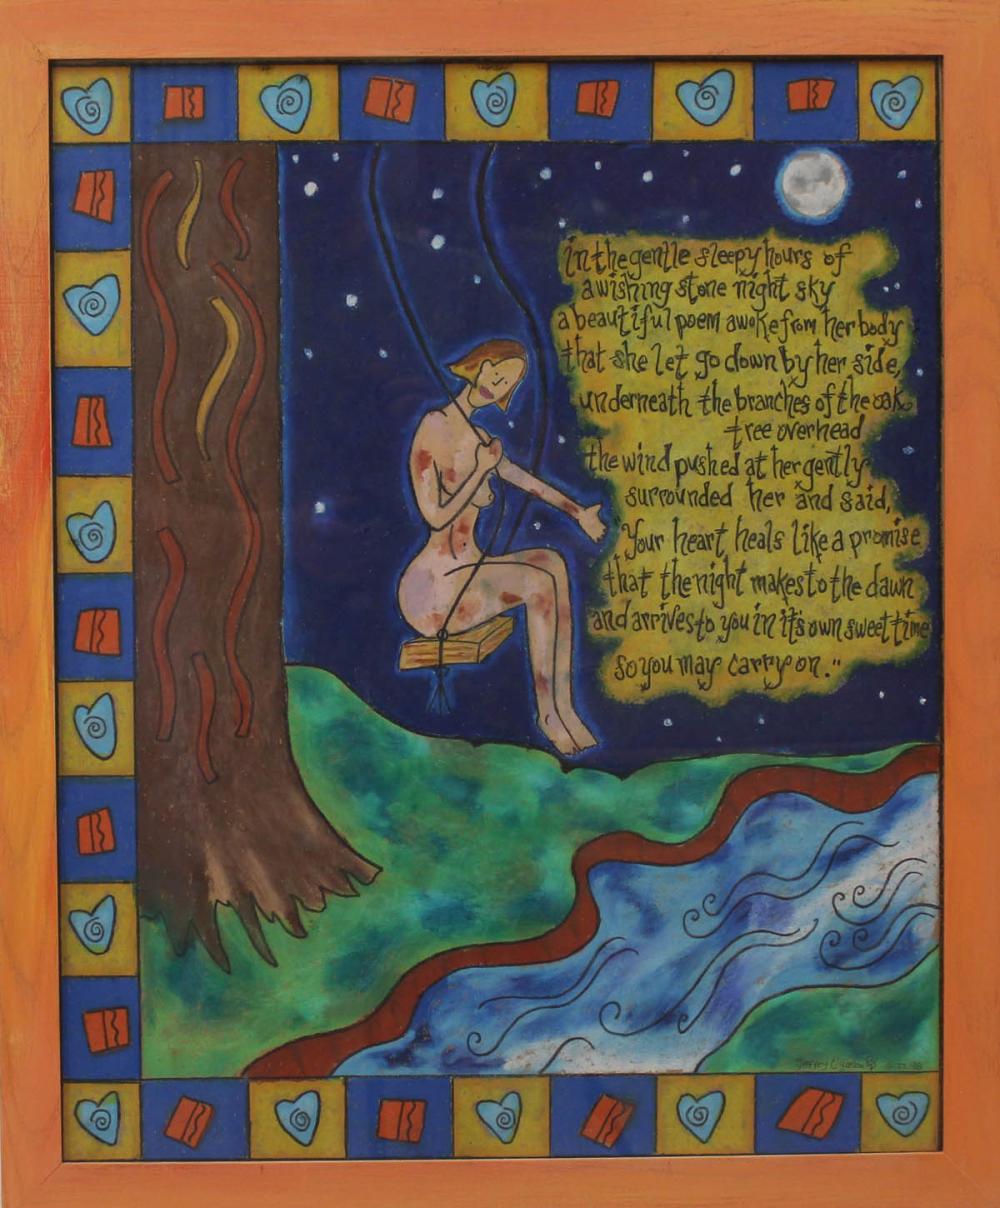 in the gentle sleepy hours of
a wishing stone night sky
a beautiful poem awoke from her body
that she let go down by her side,
underneath the branches of the oak
tree overhead
the wind pushed at her gently
surrounded her and said,
"Your heart heals like a promise
that the night makes to the dawn
and arrives to you in it's own sweet time
so you may carry on."